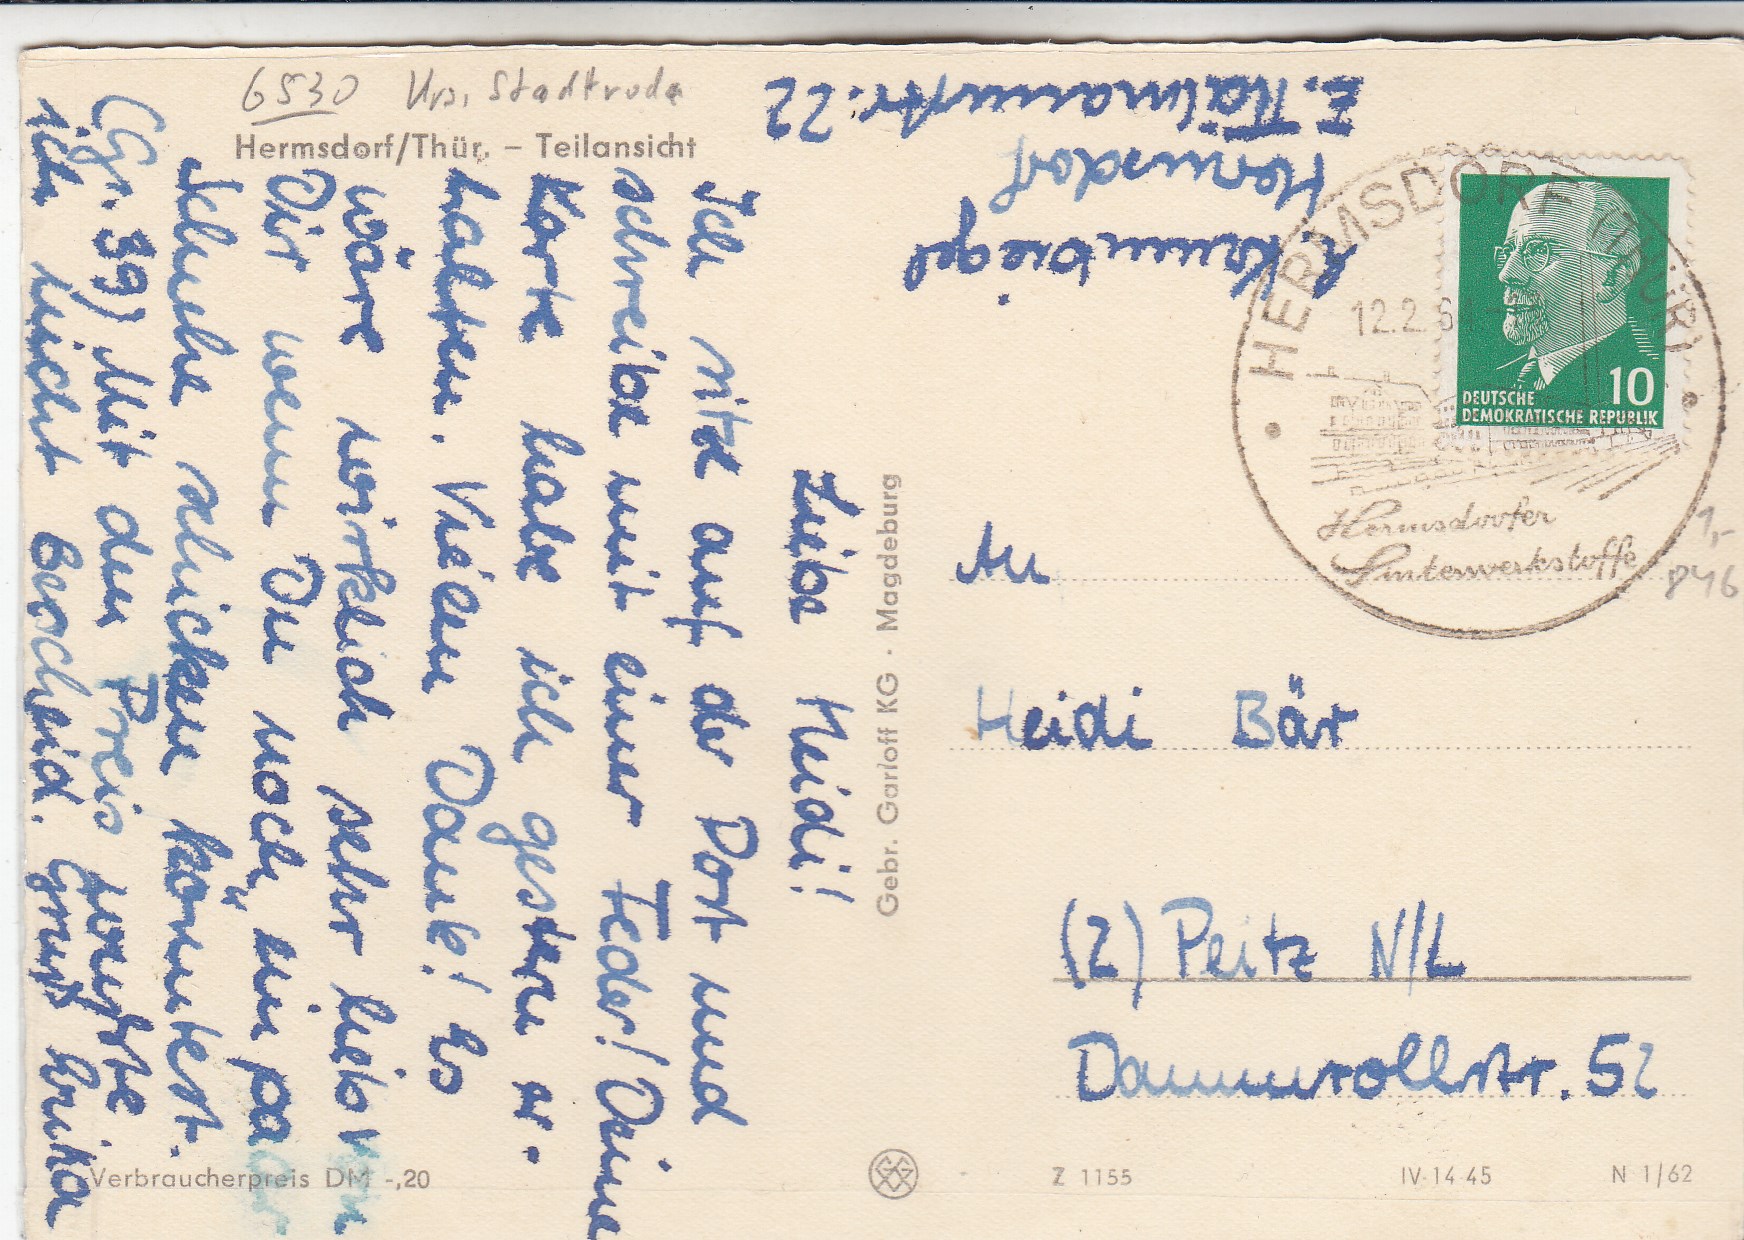 6530 Krs. Stadtroda
Hermsdorf/Thür. – Teilansicht
Liebe Heidi!
Ich sitze auf der Post und
schreibe mit einer Feder! Deine
Karte habe ich gestern er-
halten. Vielen Dank! Es
wäre wirklich sehr lieb von
Dir wenn Du noch ein paar
Schuhe schicken könntest.
(Gr. 39) Mit dem Preis
ich nicht Bescheid. Gruß Erika
Gebr. Garloff KG · Magdeburg
E. Thälmannstr. 22
Hermsdorf
HERMSDORF (THÜR)
12.2.6
Hermsdorfer
Sinterwerkstoffe
10
DEUTSCHE
DEMOKRATISCHE REPUBLIK
1,-
846
An
Heidi Bär
(2) Peitz N/L
Dammzollstr. 52
Verbraucherpreis DM -,20
Z 1155
IV-14-45
N 1/62